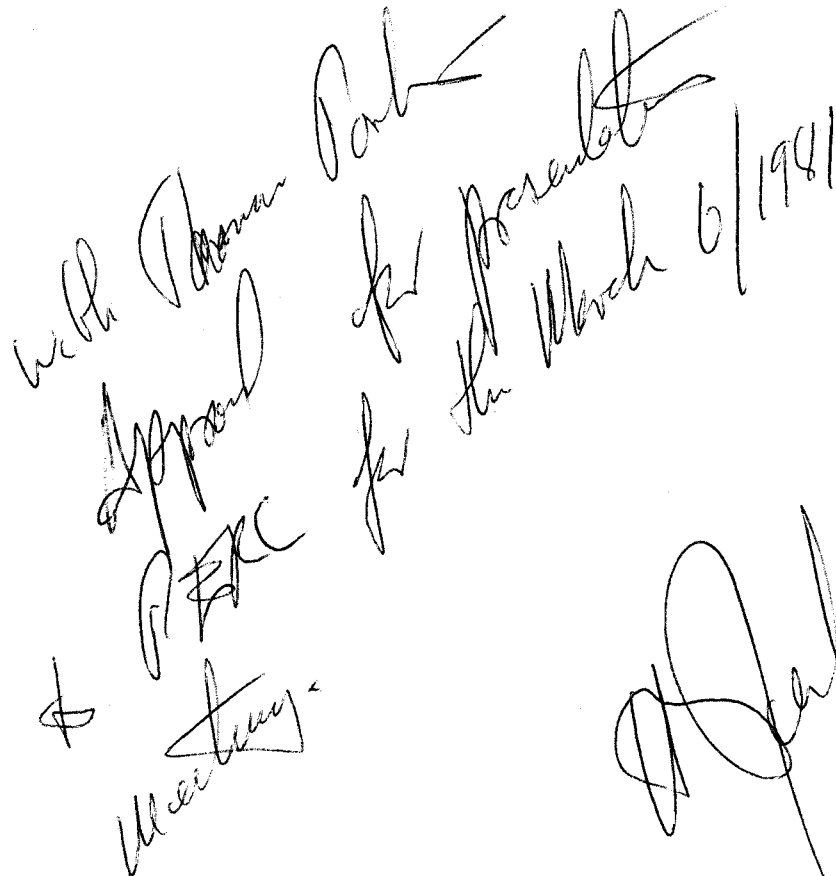 with Thomas Parker
Approval for presentation
to PERC for the March 6/1981
meeting.